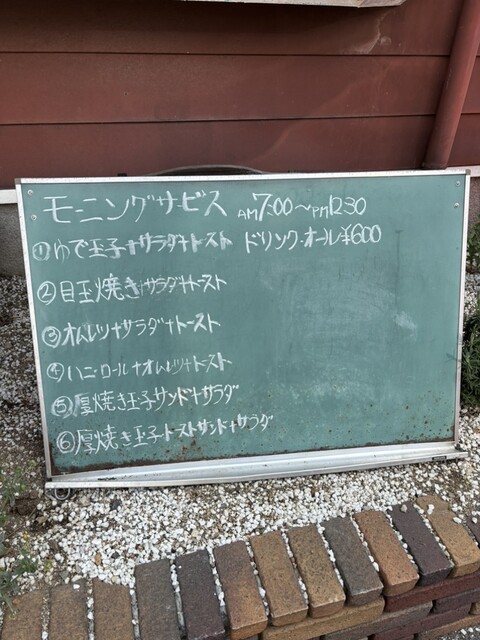 モーニングサービス AM7:00〜PM12:30
①ゆで玉子+サラダ+トースト ドリンク・オール¥600
②目玉焼き+サラダ+トースト
③オムレツ+サラダ+トースト
④ハニーロール+オムレツ+トースト
⑤厚焼き玉子サンド+サラダ
⑥厚焼き玉子トーストサンド+サラダ